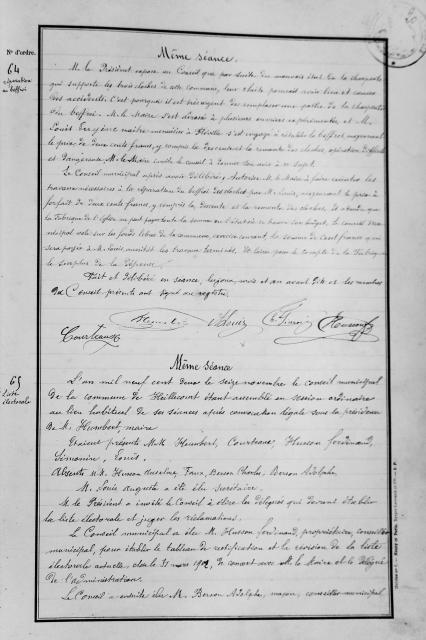 N° d'ordre.
64
réparation
au beffroi
Même séance.
M. le Président expose au Conseil que par suite du mauvais état de la charpente
qui supporte les trois cloches de cette commune, leur chute pourrait avoir lieu et causer
des accidents. C'est pourquoi il est urgent de remplacer une partie de la charpente
du beffroi. M. le Maire s'est adressé à plusieurs ouvriers expérimentés et M.
Louis maître menuisier à s'est engagé à rétablir le beffroi, moyennant
le prix de deux cents francs, y compris la descente et la remonte des cloches, opération difficile
et dangereuse. M. le Maire invite le conseil à donner son avis à ce sujet.
Le Conseil municipal après avoir délibéré, Autorise M. le Maire à faire exécuter les
travaux nécessaires à la réparation du beffroi des cloches par M. Louis, moyennant le prix à
forfait de deux cents francs, y compris la descente et la remonte des cloches. Et attendu que
la Fabrique de l'Eglise ne peut la somme en l'état où se trouve son budget, le conseil mu-
nicipal vote sur les fonds libres de la commune, la somme de cent francs qui
sera payée à M. Louis, aussitôt les travaux terminés, et laisse pour le compte de la Fabrique
le surplus de la dépense.
Fait et délibéré en séance, les jour, mois et an avant dits et les membres
du Conseil présents ont signé au registre.
Courteaux
65
Liste
électorale
Même séance
L'an mil neuf cent deux le seize novembre le conseil municipal
de la commune de Heillecourt étant assemblé en session ordinaire
au lieu habituel de ses séances après convocation légale sous la présidence
de M. Humbert, maire
Etaient présents MM. Humbert, Courteaux, Husson ferdinand,
Simonin, Louis.
Absents MM. Husson Anselme, Faux, Berson Charles, Berson Adolphe
M. Louis Auguste a été élu secrétaire.
M. le Président a invité le Conseil à élire les délégués qui devront établir
la liste électorale et juger les réclamations.
Le Conseil municipal a élu M. Husson ferdinand, propriétaire, conseiller
municipal, pour établir le tableau de rectification et la révision de la liste
électorale actuelle, close le 31 mars 1902, de concert avec M. le Maire et le délégué
de l'administration.
Le Conseil a ensuite élu M. Berson Adolphe, maçon, conseiller municipal